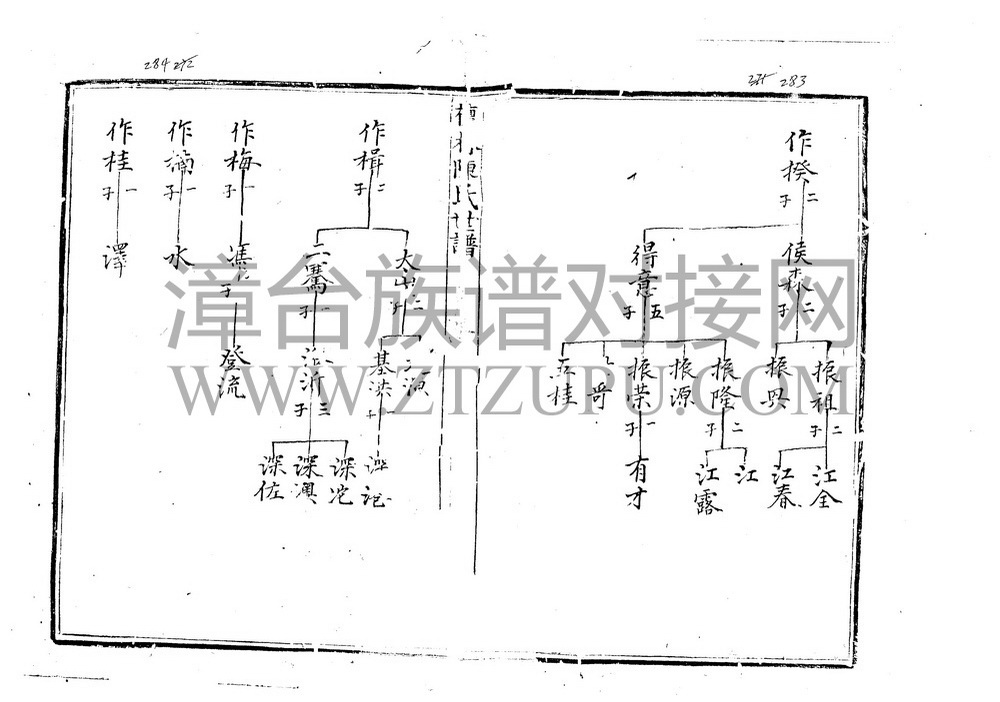 283
284
作揆
二子
侯森
二子
得意
五子
振祖
二子
振興
振隆
二子
振源
振荣
一子
哥
桂
江全
江春
江
江露
有才
陳氏世譜
作楫
二子
太山
二子
二騫
一子
基洪
一子
派沂
三子
深沱
深澳
深佐
作梅
一子
馮
子
登流
作楠
一子
水
作桂
一子
澤
漳台族谱对接网
WWW.ZTZUPU.COM